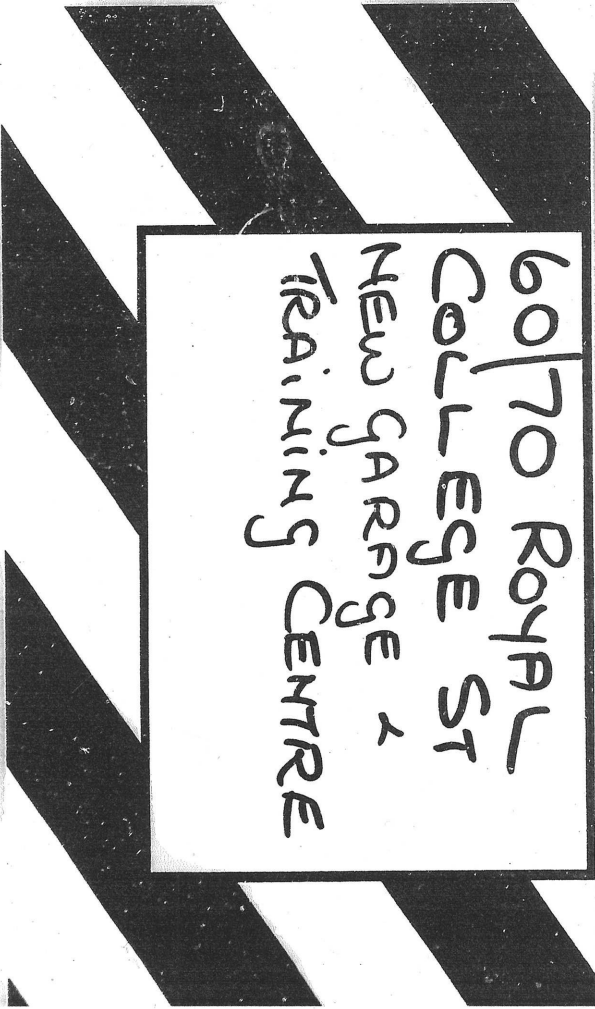 60/70 ROYAL
COLLEGE ST
NEW GARAGE &
TRAINING CENTRE